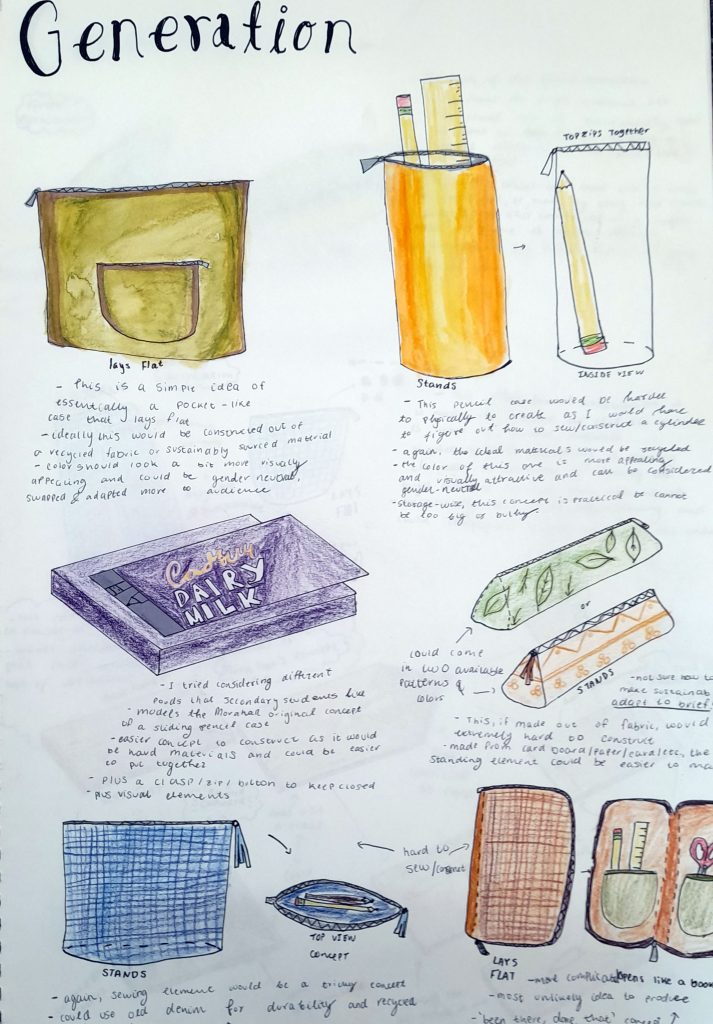 Generation
TOP ZIPS TOGETHER
lays flat
Stands
INSIDE VIEW
- This is a simple idea of
essentially a pocket-like
case that lays flat
- ideally this would be constructed out of
a recycled fabric or sustainably sourced material
- color should look a bit more visually
appealing and could be gender neutral,
swapped & adapted more to audience
- This pencil case would be harder
to physically to create as I would have
to figure out how to sew/construct a cylinder
- again, the ideal materials would be recycled
- the color of this one is more appealing
and visually attractive and can be considered
gender-neutral
- storage-wise, this concept is practical be cannot
be too big or bulky
Cadbury
DAIRY
MILK
- I tried considering different
that secondary students like
- models the original concept
of a sliding pencil case
- easier concept to construct as it would
be hard materials and could be easier
to put together
- plus a clasp/zip/button to keep closed
- plus visual elements
or
could come
in two available
patterns &
colors
STANDS
- not sure how to
make sustainab
adapt to brief
- This, if made out of fabric, would
extremely hard to construct
- made from card board/paper/card etc, the
standing element could be easier to
hard to
sew/
STANDS
TOP VIEW
CONCEPT
LAYS
FLAT
- again, sewing element would be a tricky concept
- could use old denim for durability and recycled
- most complicated
opens like a book
- most unlikely idea to produce
- 'been there, done that' concept